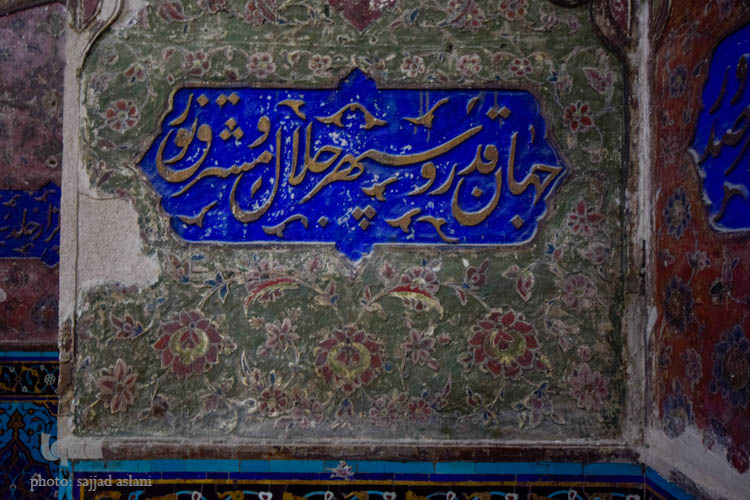 جهان قدر و سپهر جلال و مشرق نور
photo: sajjad aslani